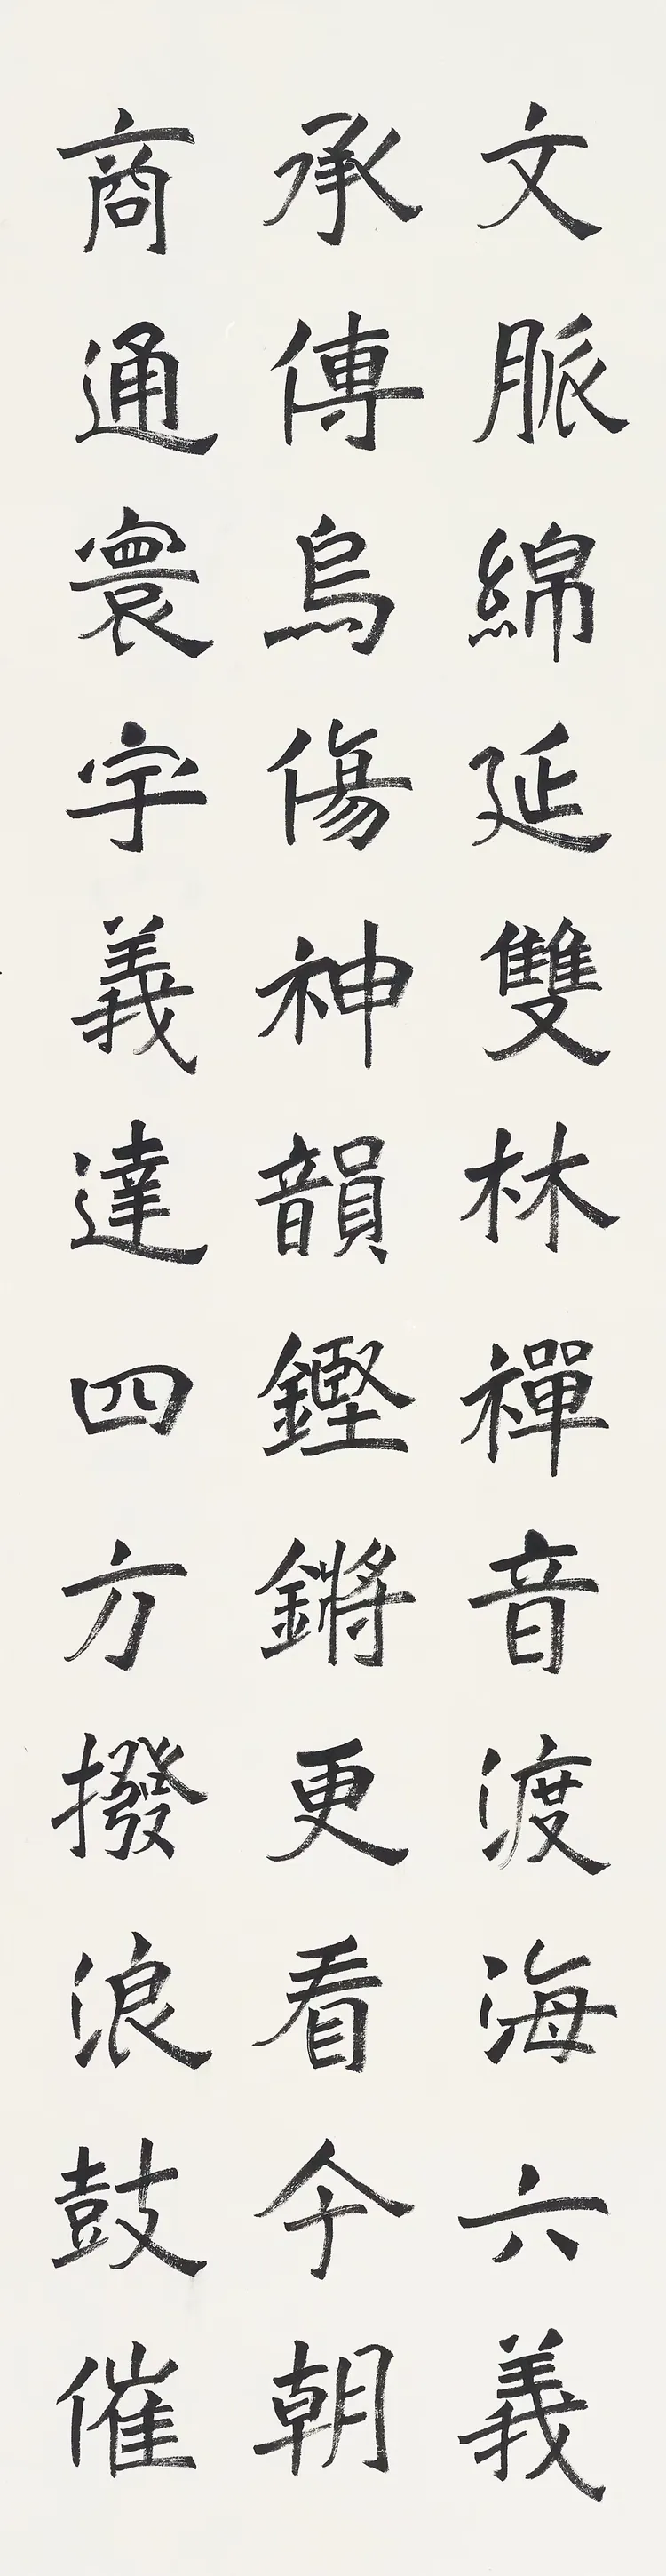 文脈綿延雙林禪音渡海六義
承傳烏傷神韻鏗鏘更看今朝
商通寰宇義達四方撥浪鼓催